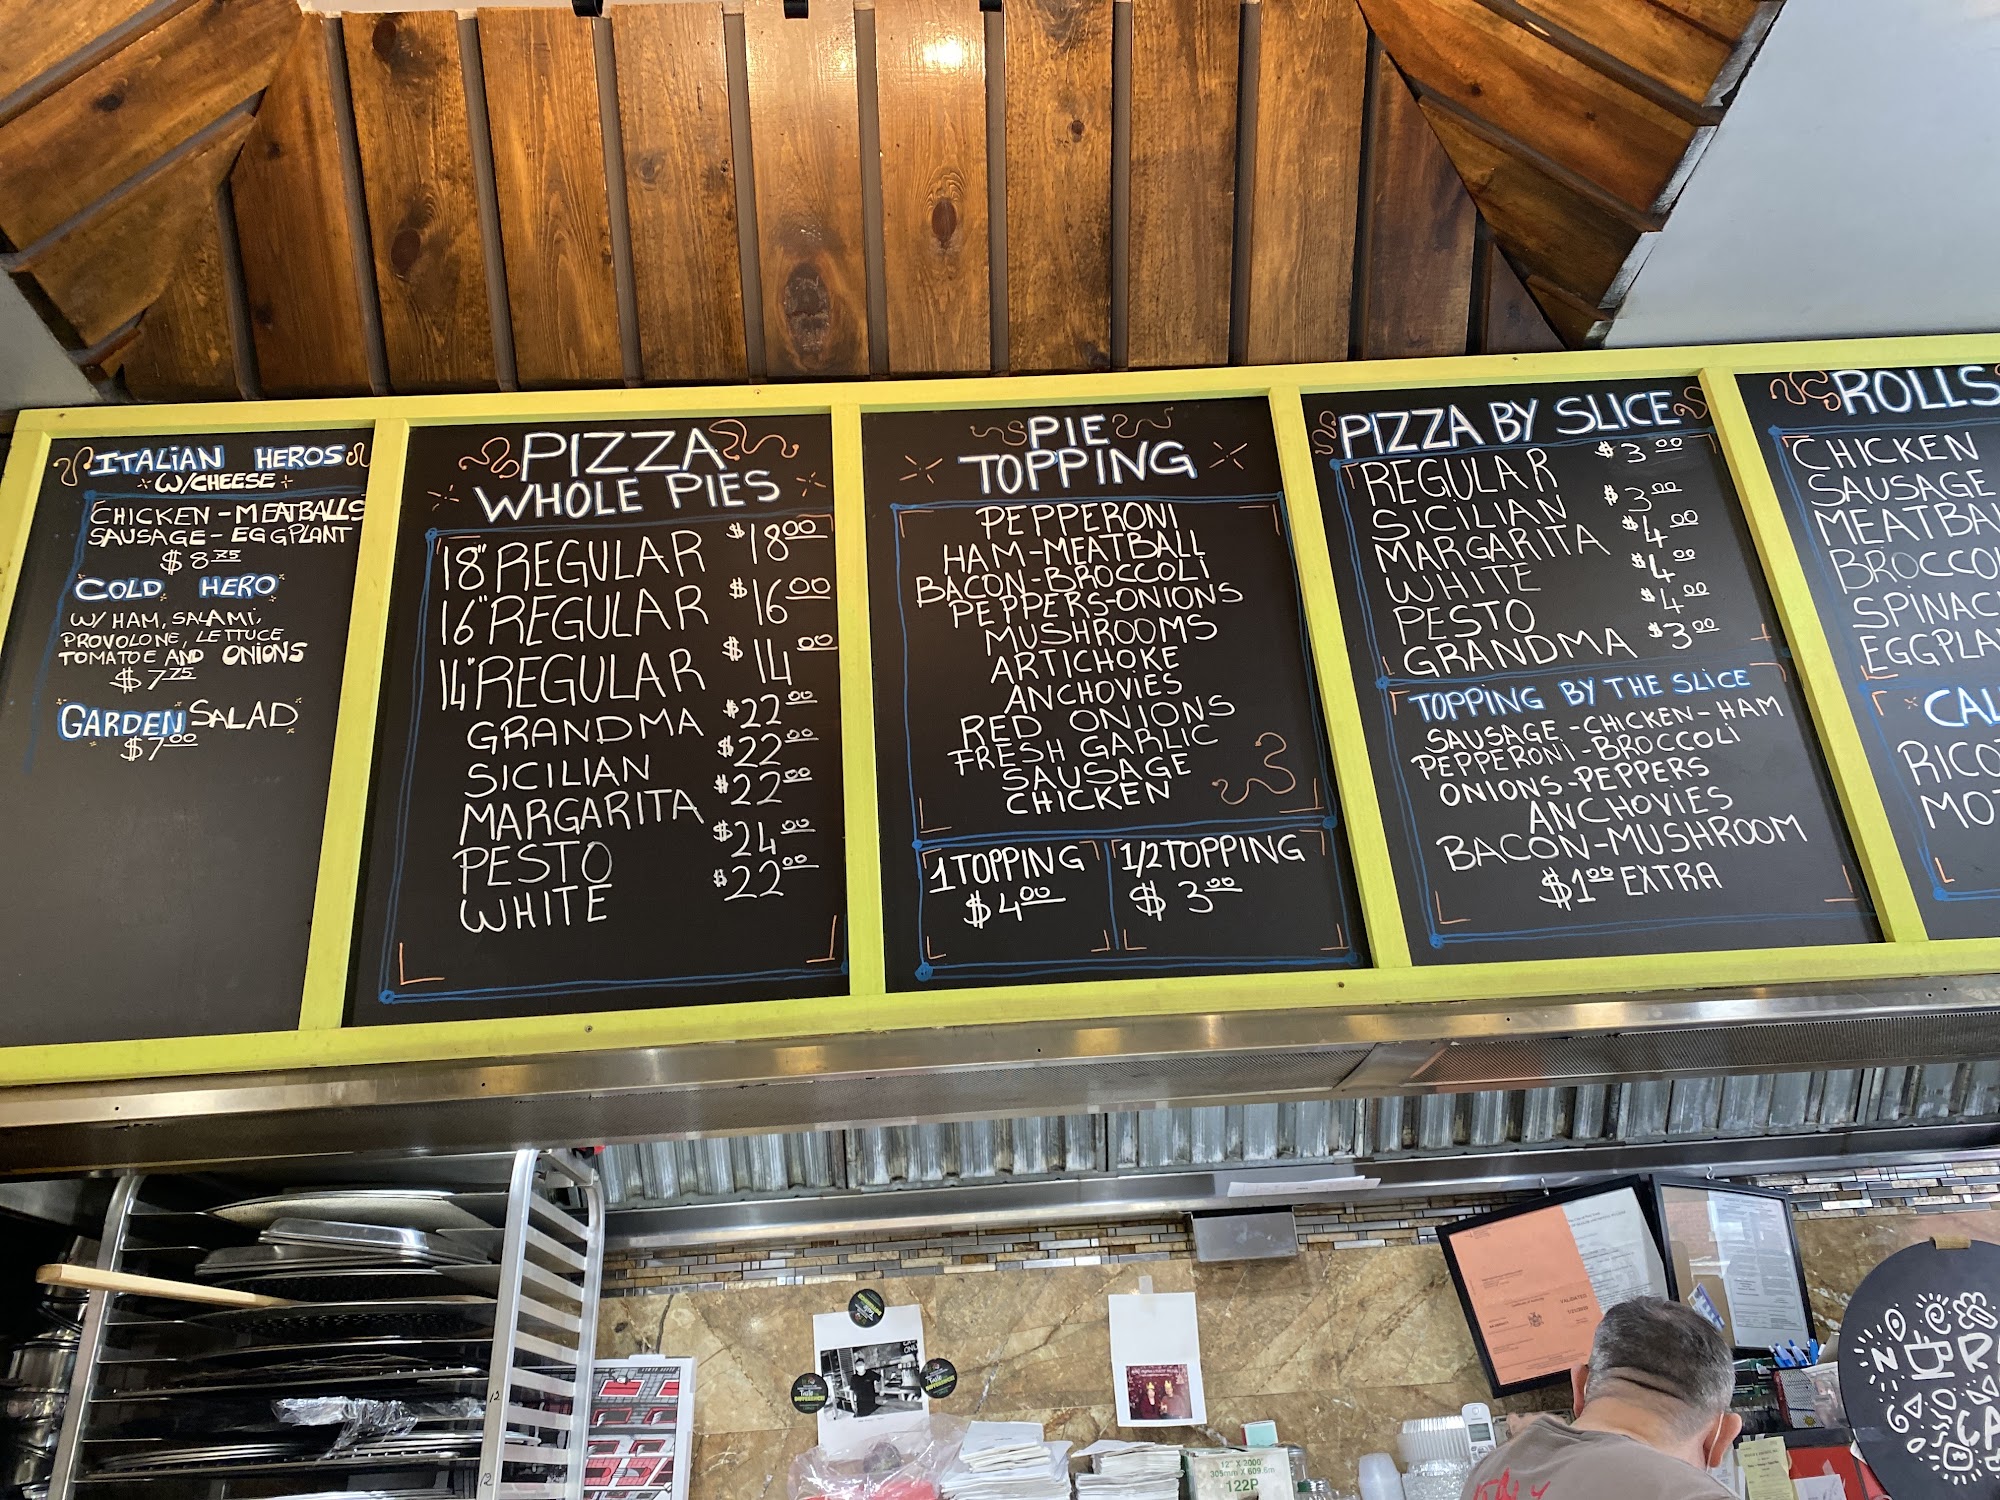 ITALIAN HEROS
W/CHEESE
CHICKEN - MEATBALLS
SAUSAGE - EGGPLANT
$8.75
COLD HERO
W/ HAM, SALAMI,
PROVOLONE, LETTUCE
TOMATOE AND ONIONS
$7.75
GARDEN SALAD
$7.00
PIZZA
WHOLE PIES
18" REGULAR $18.00
16" REGULAR $16.00
14" REGULAR $14.00
GRANDMA $22.00
SICILIAN $22.00
MARGARITA $22.00
PESTO $24.00
WHITE $22.00
PIE
TOPPING
PEPPERONI
HAM-MEATBALL
BACON-BROCCOLI
PEPPERS-ONIONS
MUSHROOMS
ARTICHOKE
ANCHOVIES
RED ONIONS
FRESH GARLIC
SAUSAGE
CHICKEN
1 TOPPING
$4.00
1/2 TOPPING
$3.00
PIZZA BY SLICE
REGULAR $3.00
SICILIAN $3.00
MARGARITA $4.00
WHITE $4.00
PESTO $4.00
GRANDMA $3.00
TOPPING BY THE SLICE
SAUSAGE - CHICKEN - HAM
PEPPERONI - BROCCOLI
ONIONS-PEPPERS
ANCHOVIES
BACON-MUSHROOM
$1.00 EXTRA
ROLLS
CHICKEN
SAUSAGE
MEATBA
BROCCO
SPINAC
EGGPLA
CAL
RICO
MOT
12
12
12" X 3000'
305mm X 609.6m
122P